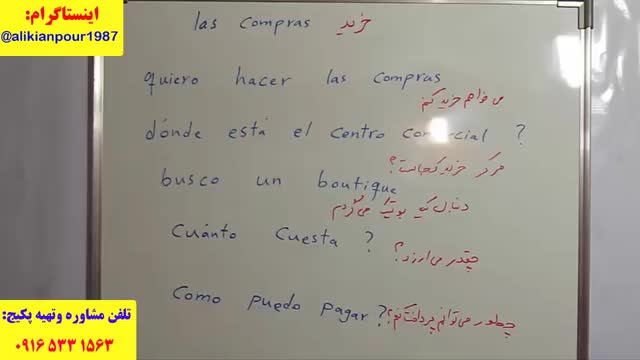 اینستاگرام:
@alikianpour1987
las compras خرید
quiero hacer las compras
می خواهم خرید کنم
dónde está el centro comercial ?
مرکز خرید کجاست؟
busco un boutique
دنبال یک بوتیک می گردم
Cuánto Cuesta ?
چقدر می ارزد؟
Como puedo pagar ?
چطور می توانم پرداخت کنم؟
تلفن مشاوره وتهیه پکیج:
۰۹۱۶ ۵۳۳ ۱۵۶۳